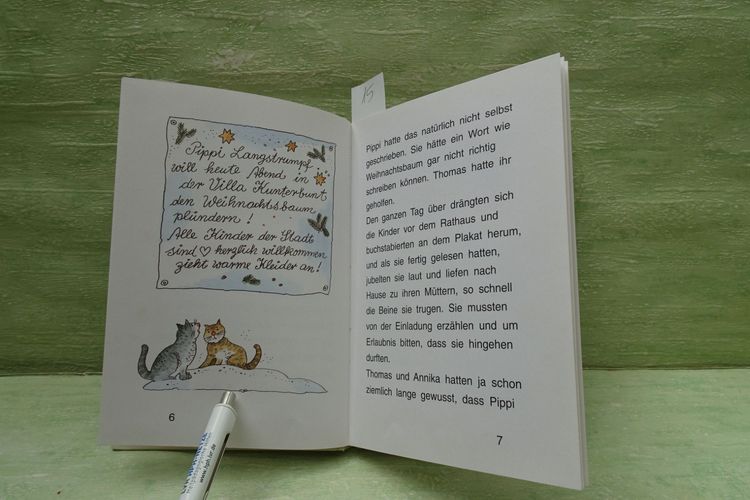 Pippi Langstrumpf
will heute Abend in
der Villa Kunterbunt
den Weihnachtsbaum
plündern!
Alle Kinder der Stadt
sind ♡ herzlich willkommen
zieht warme Kleider an!
6
15
Pippi hatte das natürlich nicht selbst
geschrieben. Sie hätte ein Wort wie
Weihnachtsbaum gar nicht richtig
schreiben können. Thomas hatte ihr
geholfen.
Den ganzen Tag über drängten sich
die Kinder vor dem Rathaus und
buchstabierten an dem Plakat herum,
und als sie fertig gelesen hatten,
jubelten sie laut und liefen nach
Hause zu ihren Müttern, so schnell
die Beine sie trugen. Sie mussten
von der Einladung erzählen und um
Erlaubnis bitten, dass sie hingehen
durften.
Thomas und Annika hatten ja schon
ziemlich lange gewusst, dass Pippi
7